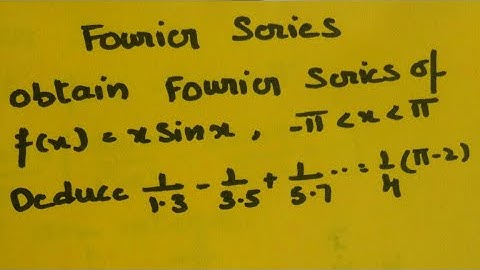 Fourier Series
obtain Fourier Series of
f(x) = x sin x, -π < x < π
Deduce 1/1·3 - 1/3·5 + 1/5·7 ... = 1/4 (π-2)